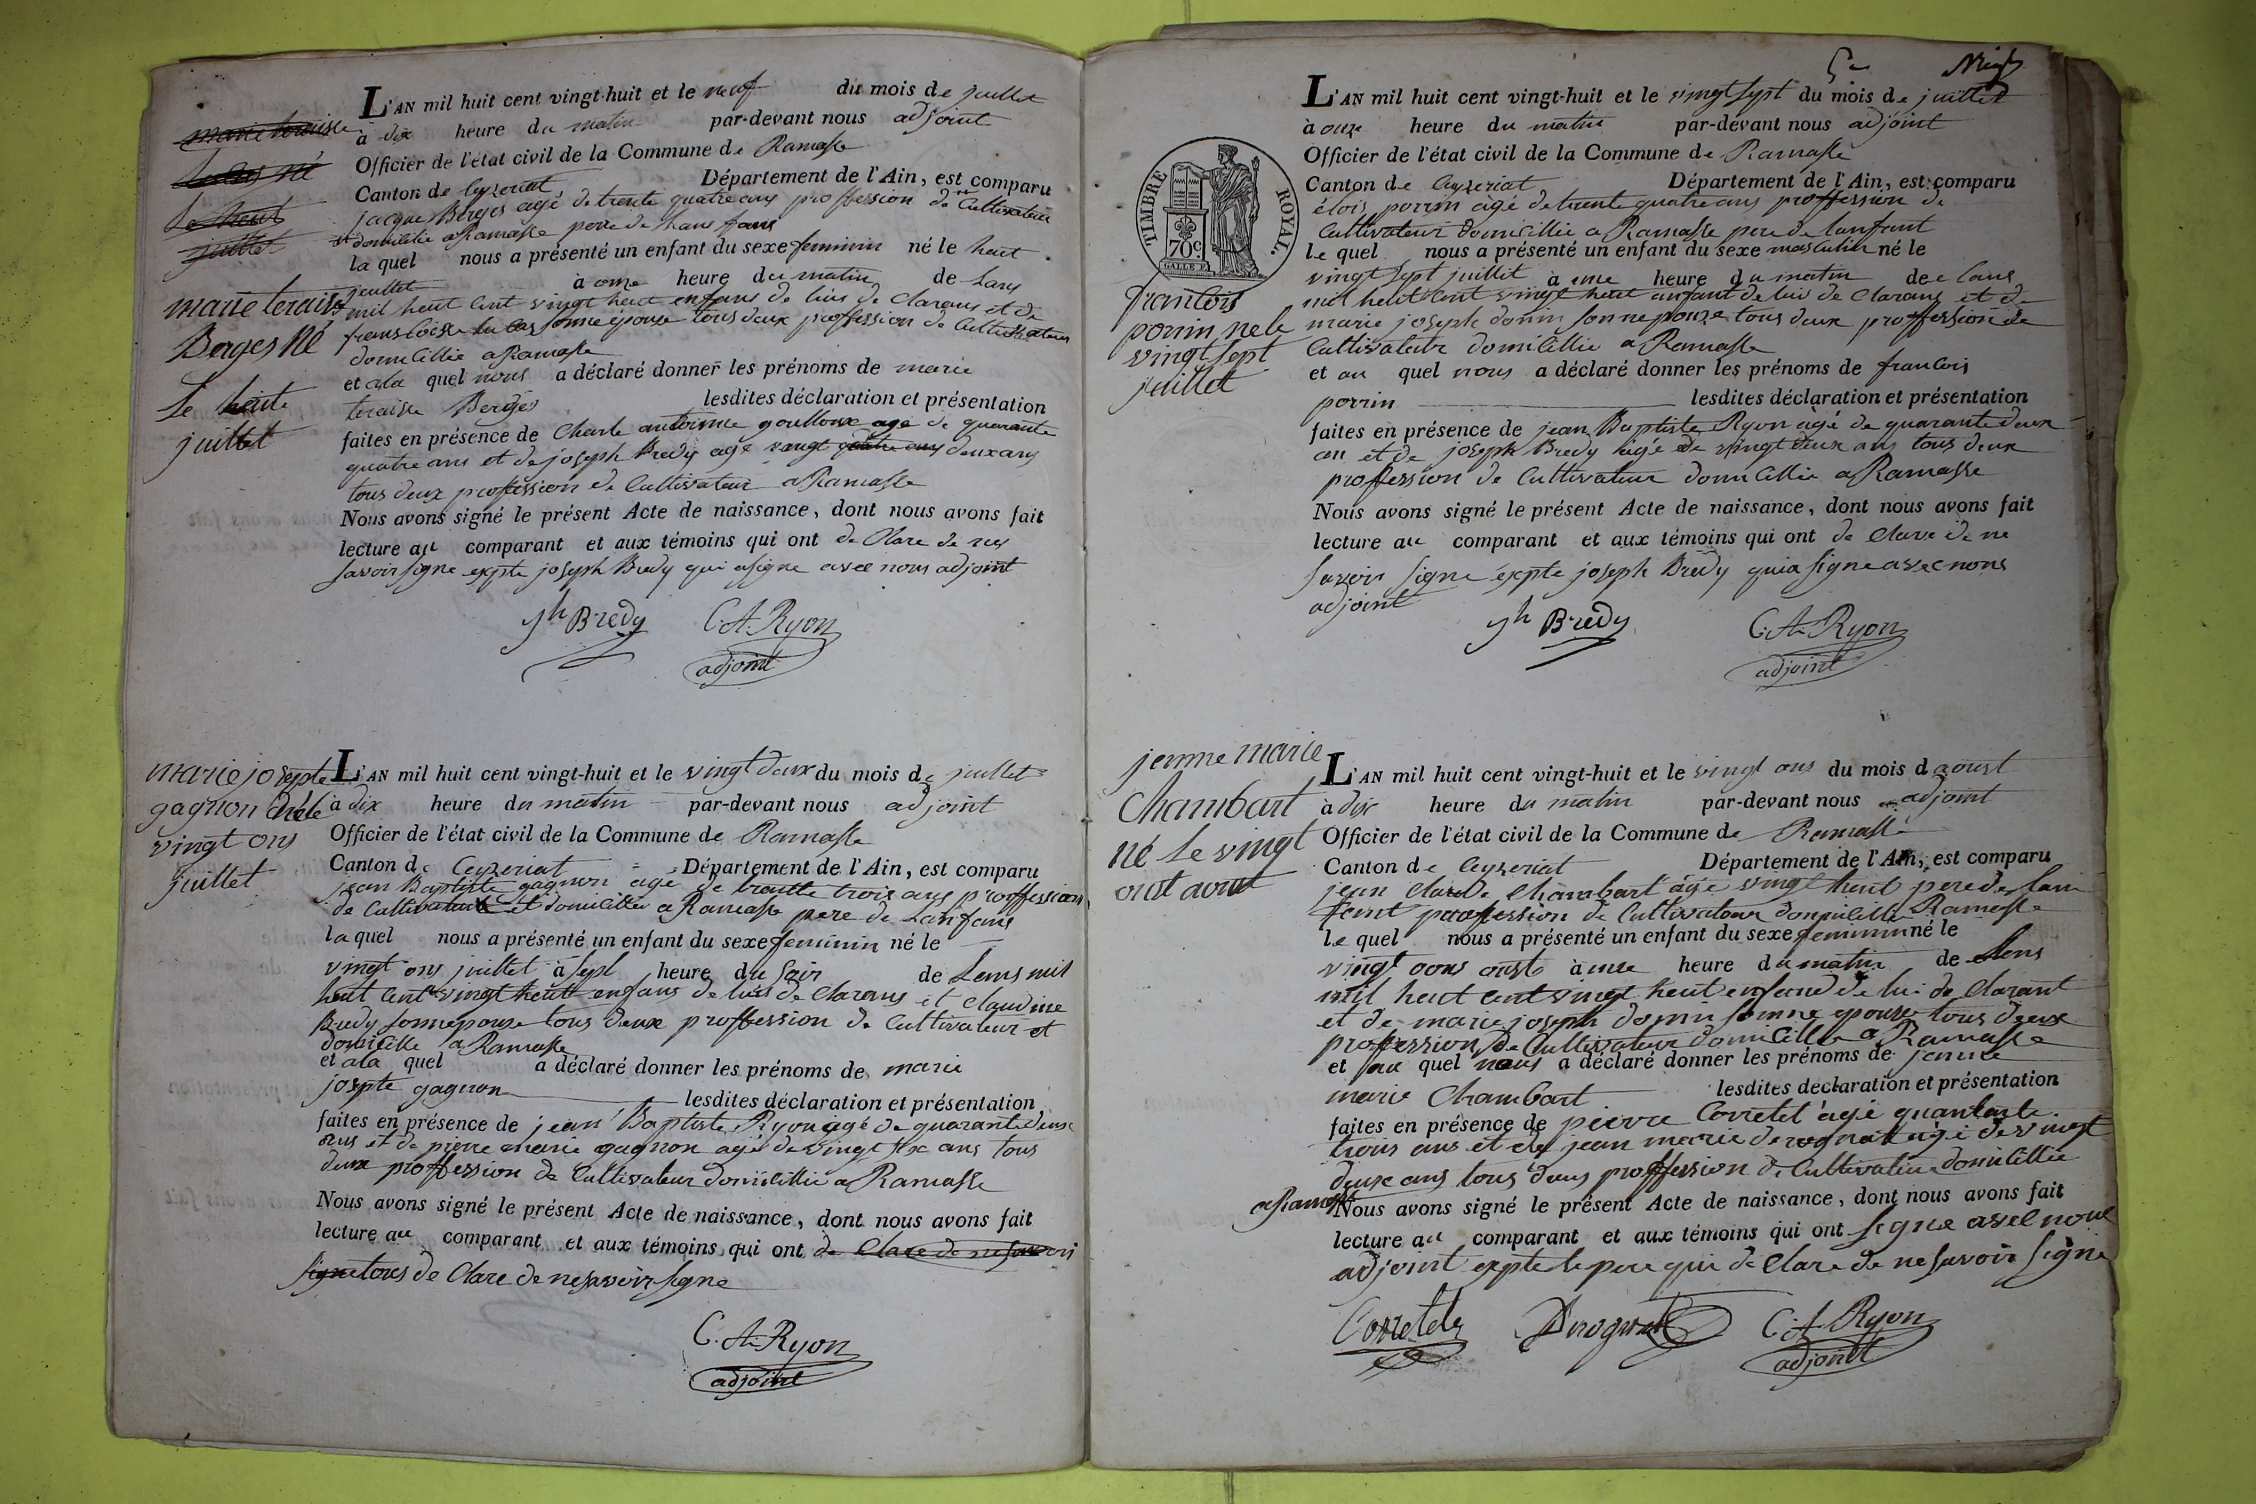 marie teraisse
Lucas né
Le heut
juillet
marie teraise
Berges Né
Le heute
juillet
L'AN mil huit cent vingt-huit et le neuf du mois de juillet
à dix heure du matin par-devant nous adjoint
Officier de l'état civil de la Commune de Ramasse
Canton de Ceyzeriat Département de l'Ain, est comparu
jacque Berges agé de trente quatre ans proffession de Cultivateur
et domicilié a Ramasse pere de Lans fans
la quel nous a présenté un enfant du sexe feminin né le heut
juillet à onze heure du matin de Lans
mil heut cent vingt heut enfans de lui de clarans et de
franscoise lucas sonne épouse tous deux proffession de Cultivateur
domicillié a Ramasse
et ala quel nous a déclaré donner les prénoms de marie
teraise Berges lesdites déclaration et présentation
faites en présence de Charle antoinne goulloux age de quarante
quatre ans et de joseph Bredy age vangt quatre ans deux ans
tous deux proffession de Cultivateur a Ramasse
Nous avons signé le présent Acte de naissance, dont nous avons fait
lecture au comparant et aux témoins qui ont de Clare de nes
savoir signe expte joseph Bredy qui a signe avec nous adjoint
jh Bredy C. A. Ryon
adjoint
marie josepte
gagnon né le
vingt ons
juillet
L'AN mil huit cent vingt-huit et le vingt deux du mois de juillet
à dix heure du matin par-devant nous adjoint
Officier de l'état civil de la Commune de Ramasse
Canton de Ceyzeriat Département de l'Ain, est comparu
jean Baptiste gagnon age de trantte trois ans proffession
de Cultivateur et domicillié a Ramasse pere de Lanfans
la quel nous a présenté un enfant du sexe feminin né le
vingt ons juillet à sept heure du soir de Lans mil
heut cent vingt heut enfans de lui de clarans et claudine
Bredy sonnepouse tous deux proffession de Cultivateur et
domicille a Ramasse
et ala quel a déclaré donner les prénoms de marie
jospte gagnon lesdites déclaration et présentation
faites en présence de jean Baptiste Ryon agé de quarante deux
ans et de pierre marie gagnon agé de vingt six ans tous
deux proffession de Cultivateur domicillié a Ramasse
Nous avons signé le présent Acte de naissance, dont nous avons fait
lecture au comparant et aux témoins qui ont de Clare de ne savoir
signe tous de Clare de ne savoir signe
C. A. Ryon
adjoint
5e
TIMBRE ROYAL.
70c.
francois
porrin ne le
vingt sept
juillet
L'AN mil huit cent vingt-huit et le vingt sept du mois de juillet
à onze heure du matin par-devant nous adjoint
Officier de l'état civil de la Commune de Ramasse
Canton de Ceyzeriat Département de l'Ain, est comparu
élois porrin agé de trente quatre ans proffession de
Cultivateur domicillié a Ramasse pere de lanfant
le quel nous a présenté un enfant du sexe masculin né le
vingt sept juillet à une heure du matin de Lans
mil heut cent vingt heut anfant de lui de clarans et de
marie joseph donin sonnepouze tous deux proffession de
Cultivateur domicillié a Ramasse
et au quel nous a déclaré donner les prénoms de francois
porrin lesdites déclaration et présentation
faites en présence de jean Baptiste Ryon agé de quarante deux
an et de joseph Bredy agé de vingt deux ans tous deux
proffession de Cultivateur domicillié a Ramasse
Nous avons signé le présent Acte de naissance, dont nous avons fait
lecture au comparant et aux témoins qui ont de Clare de ne
savoir signe expte joseph Bredy qui a signe avec nous
adjoint
jh Bredy C. A. Ryon
adjoint
jenne marie
Chambart
né Le vingt
ont aout
L'AN mil huit cent vingt-huit et le vingt ons du mois d aoust
à dix heure du matin par-devant nous adjoint
Officier de l'état civil de la Commune de Ramasse
Canton de Ceyzeriat Département de l'Ain, est comparu
jean claude Chambart age vingt heut pere de Lan
fant proffession de Cultivateur domicillié Ramasse
le quel nous a présenté un enfant du sexe feminin né le
vingt oons oust à une heure du matin de Lens
mil heut cent vingt heut enfand de lui de clarant
et de marie joseph donin sonne epouse tous deux
proffession de Cultivateur domicillié a Ramasse
et au quel nous a déclaré donner les prénoms de jenne
marie Chambart lesdites déclaration et présentation
faites en présence de pierre Corretel agé quarante
trois ans et de jean marie derognat agé de vingt
deux ans tous deux proffession de Cultivateur domicillié
a Ramasse Nous avons signé le présent Acte de naissance, dont nous avons fait
lecture au comparant et aux témoins qui ont signe avec nous
adjoint expte le pere qui de Clare de ne savoir signe
Corretel Derognat C. A. Ryon
adjoint